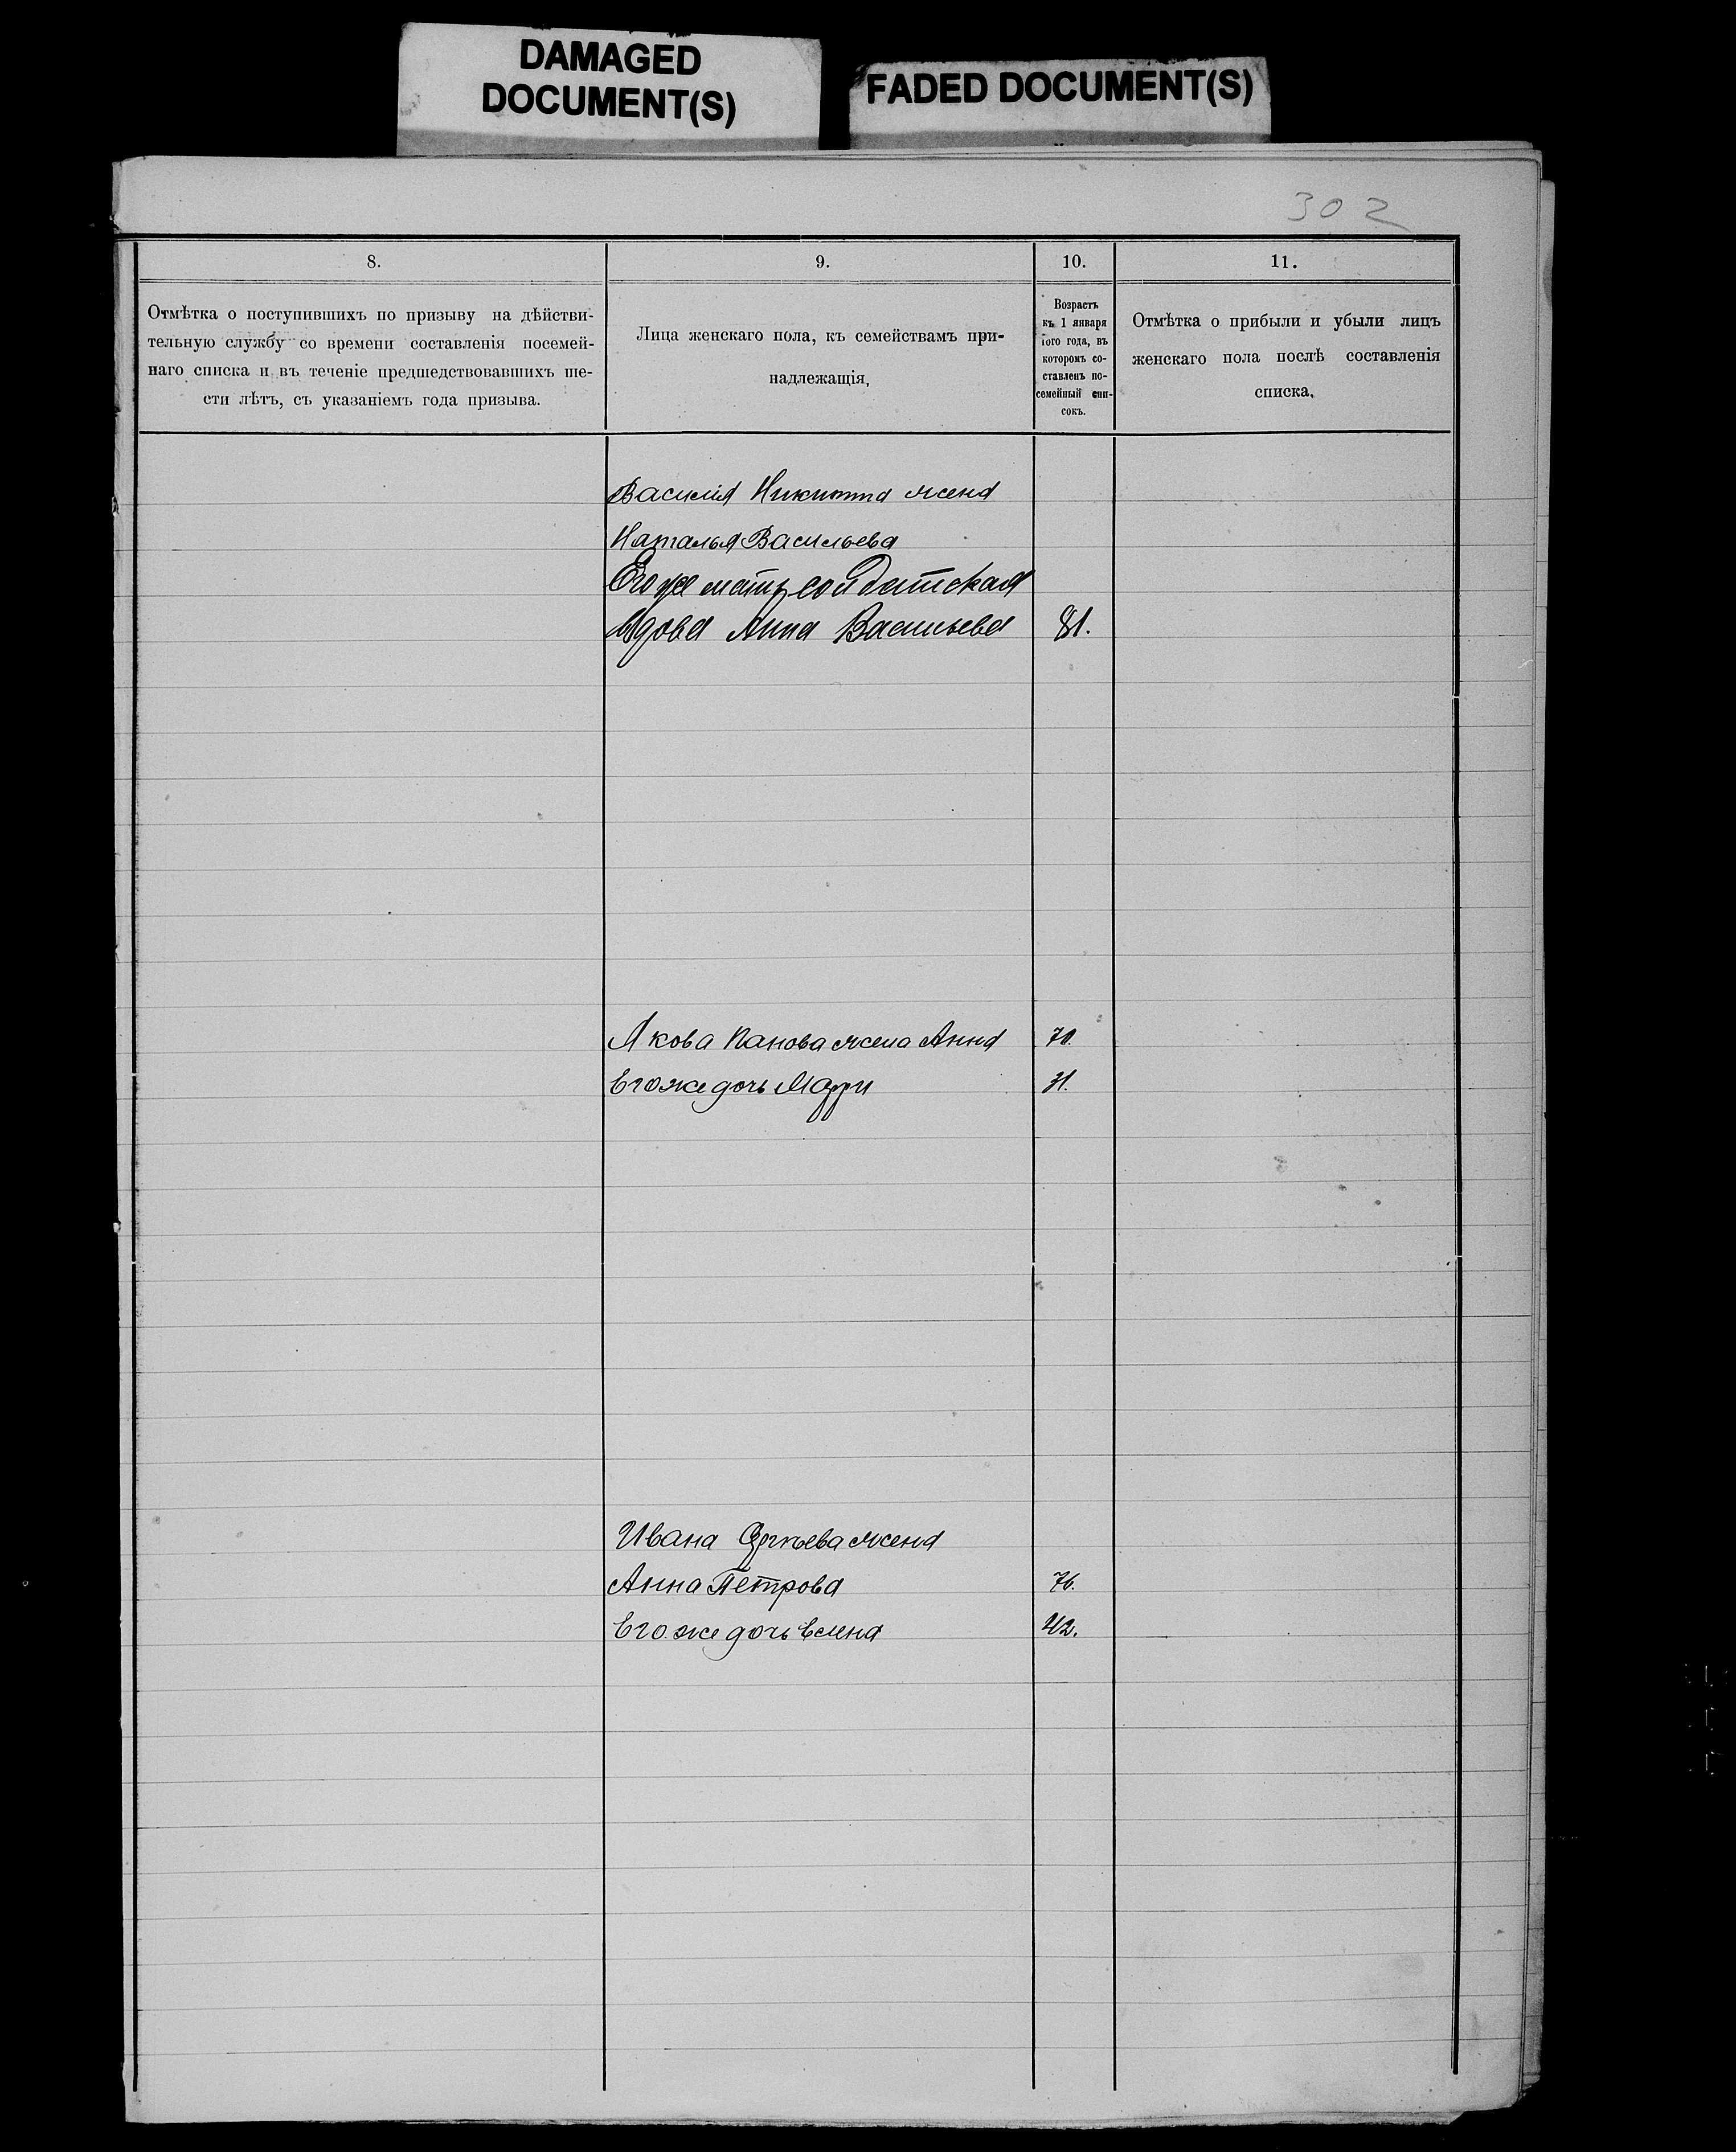 DAMAGED
DOCUMENT(S)
FADED DOCUMENT(S)
302
8.
9.
10.
11.
Отмѣтка о поступившихъ по призыву на дѣйстви-
тельную службу со времени составленія посемей-
наго списка и въ теченіе предшедствовавшихъ ше-
сти лѣтъ, съ указаніемъ года призыва.
Лица женскаго пола, къ семействамъ при-
надлежащія,
Возрастъ
къ 1 января
того года, въ
которомъ со-
ставленъ по-
семейный спи-
сокъ.
Отмѣтка о прибыли и убыли лицъ
женскаго пола послѣ составленія
списка.
Василія Никитина жена
Наталья Васильева
Его же мать солдатская
вдова Анна Васильева 81.
Якова Панова жена Анна 70.
Его же дочь 31.
Ивана жена
Анна Петрова 76.
Его же дочь Елена 42.